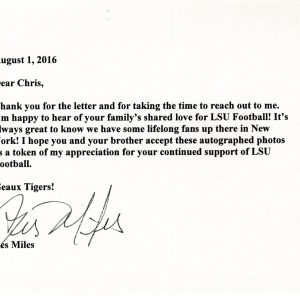 ugust 1, 2016
ear Chris,
hank you for the letter and for taking the time to reach out to me.
m happy to hear of your family's shared love for LSU Football! It's
lways great to know we have some lifelong fans up there in New
ork! I hope you and your brother accept these autographed photos
s a token of my appreciation for your continued support of LSU
ootball.
eaux Tigers!
Les Miles
es Miles